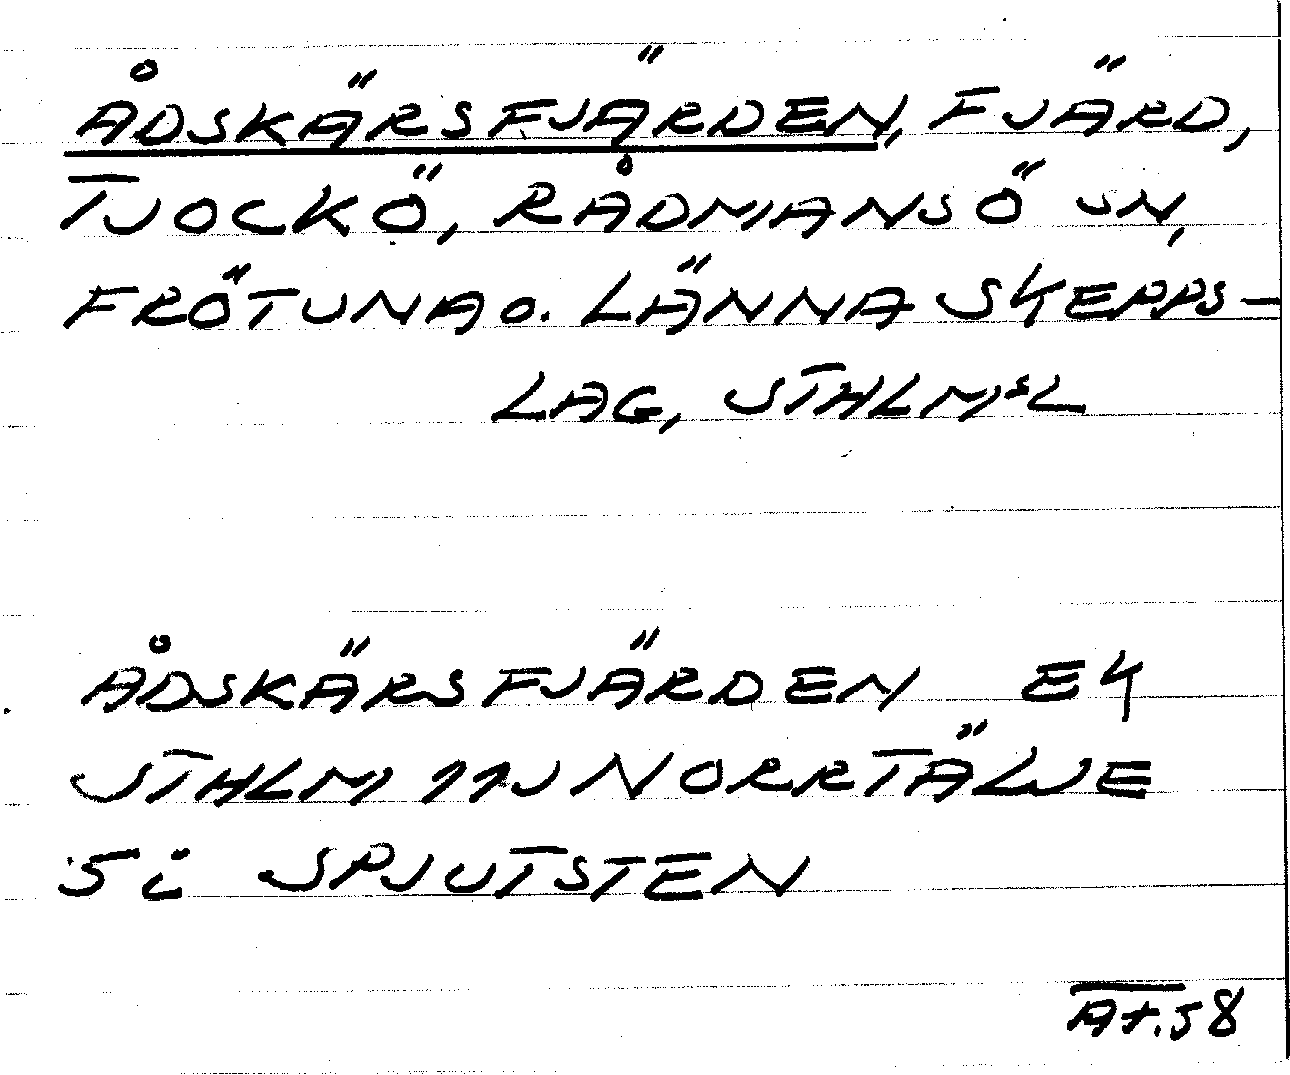 ÅDSKÄRSFJÄRDEN, FJÄRD,
TJOCKÖ, RÅDMANSÖ SN,
FRÖTUNA O. LÄNNA SKEPPS-
LAG, STHLMSL
ÅDSKÄRSFJÄRDEN EK
STHLM 11J NORRTÄLJE
5i SPJUTSTEN
At.58